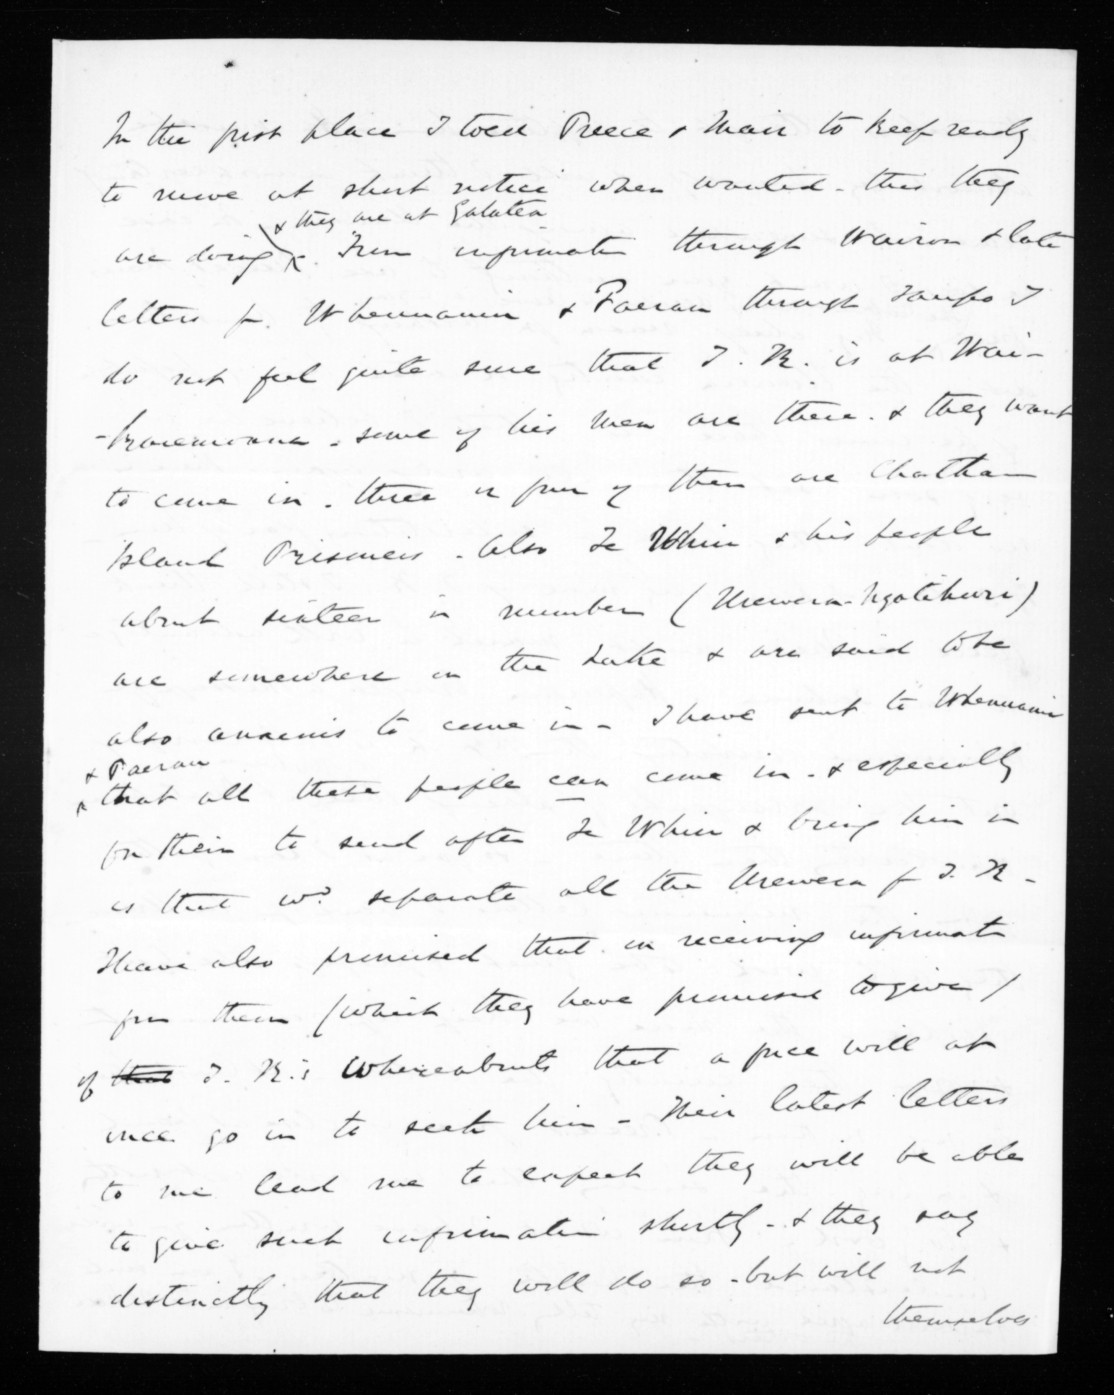 In the first place I told Preece & Mair to keep ready
to move at short notice when wanted - this they
& they are at Galatea
are doing. From informatn through Wairoa & late
letters fr. Whenuanui & Paerau through Taupo I
do not feel quite sure that T. K. is at Wai-
-karemoana - some of his men are there. & they want
to come in. three or four of them are Chatham
Island Prisoners - also Te Whiu & his people
about sixteen in number (Urewera-Ngatihuri)
are somewhere on the Lake & are said to be
also anxious to come in - I have sent to Whenuanui
& Paerau
that all these people can come in - & especially
for them to send after Te Whiu & bring him in
as that wd. separate all the Urewera fr T. K -
I have also promised that on receiving informatn
from them (which they have promised to give)
of that T. K.'s whereabouts that a force will at
once go in to seek him - Their latest letters
to me lead me to expect they will be able
to give such information shortly - & they say
distinctly that they will do so - but will not
themselves